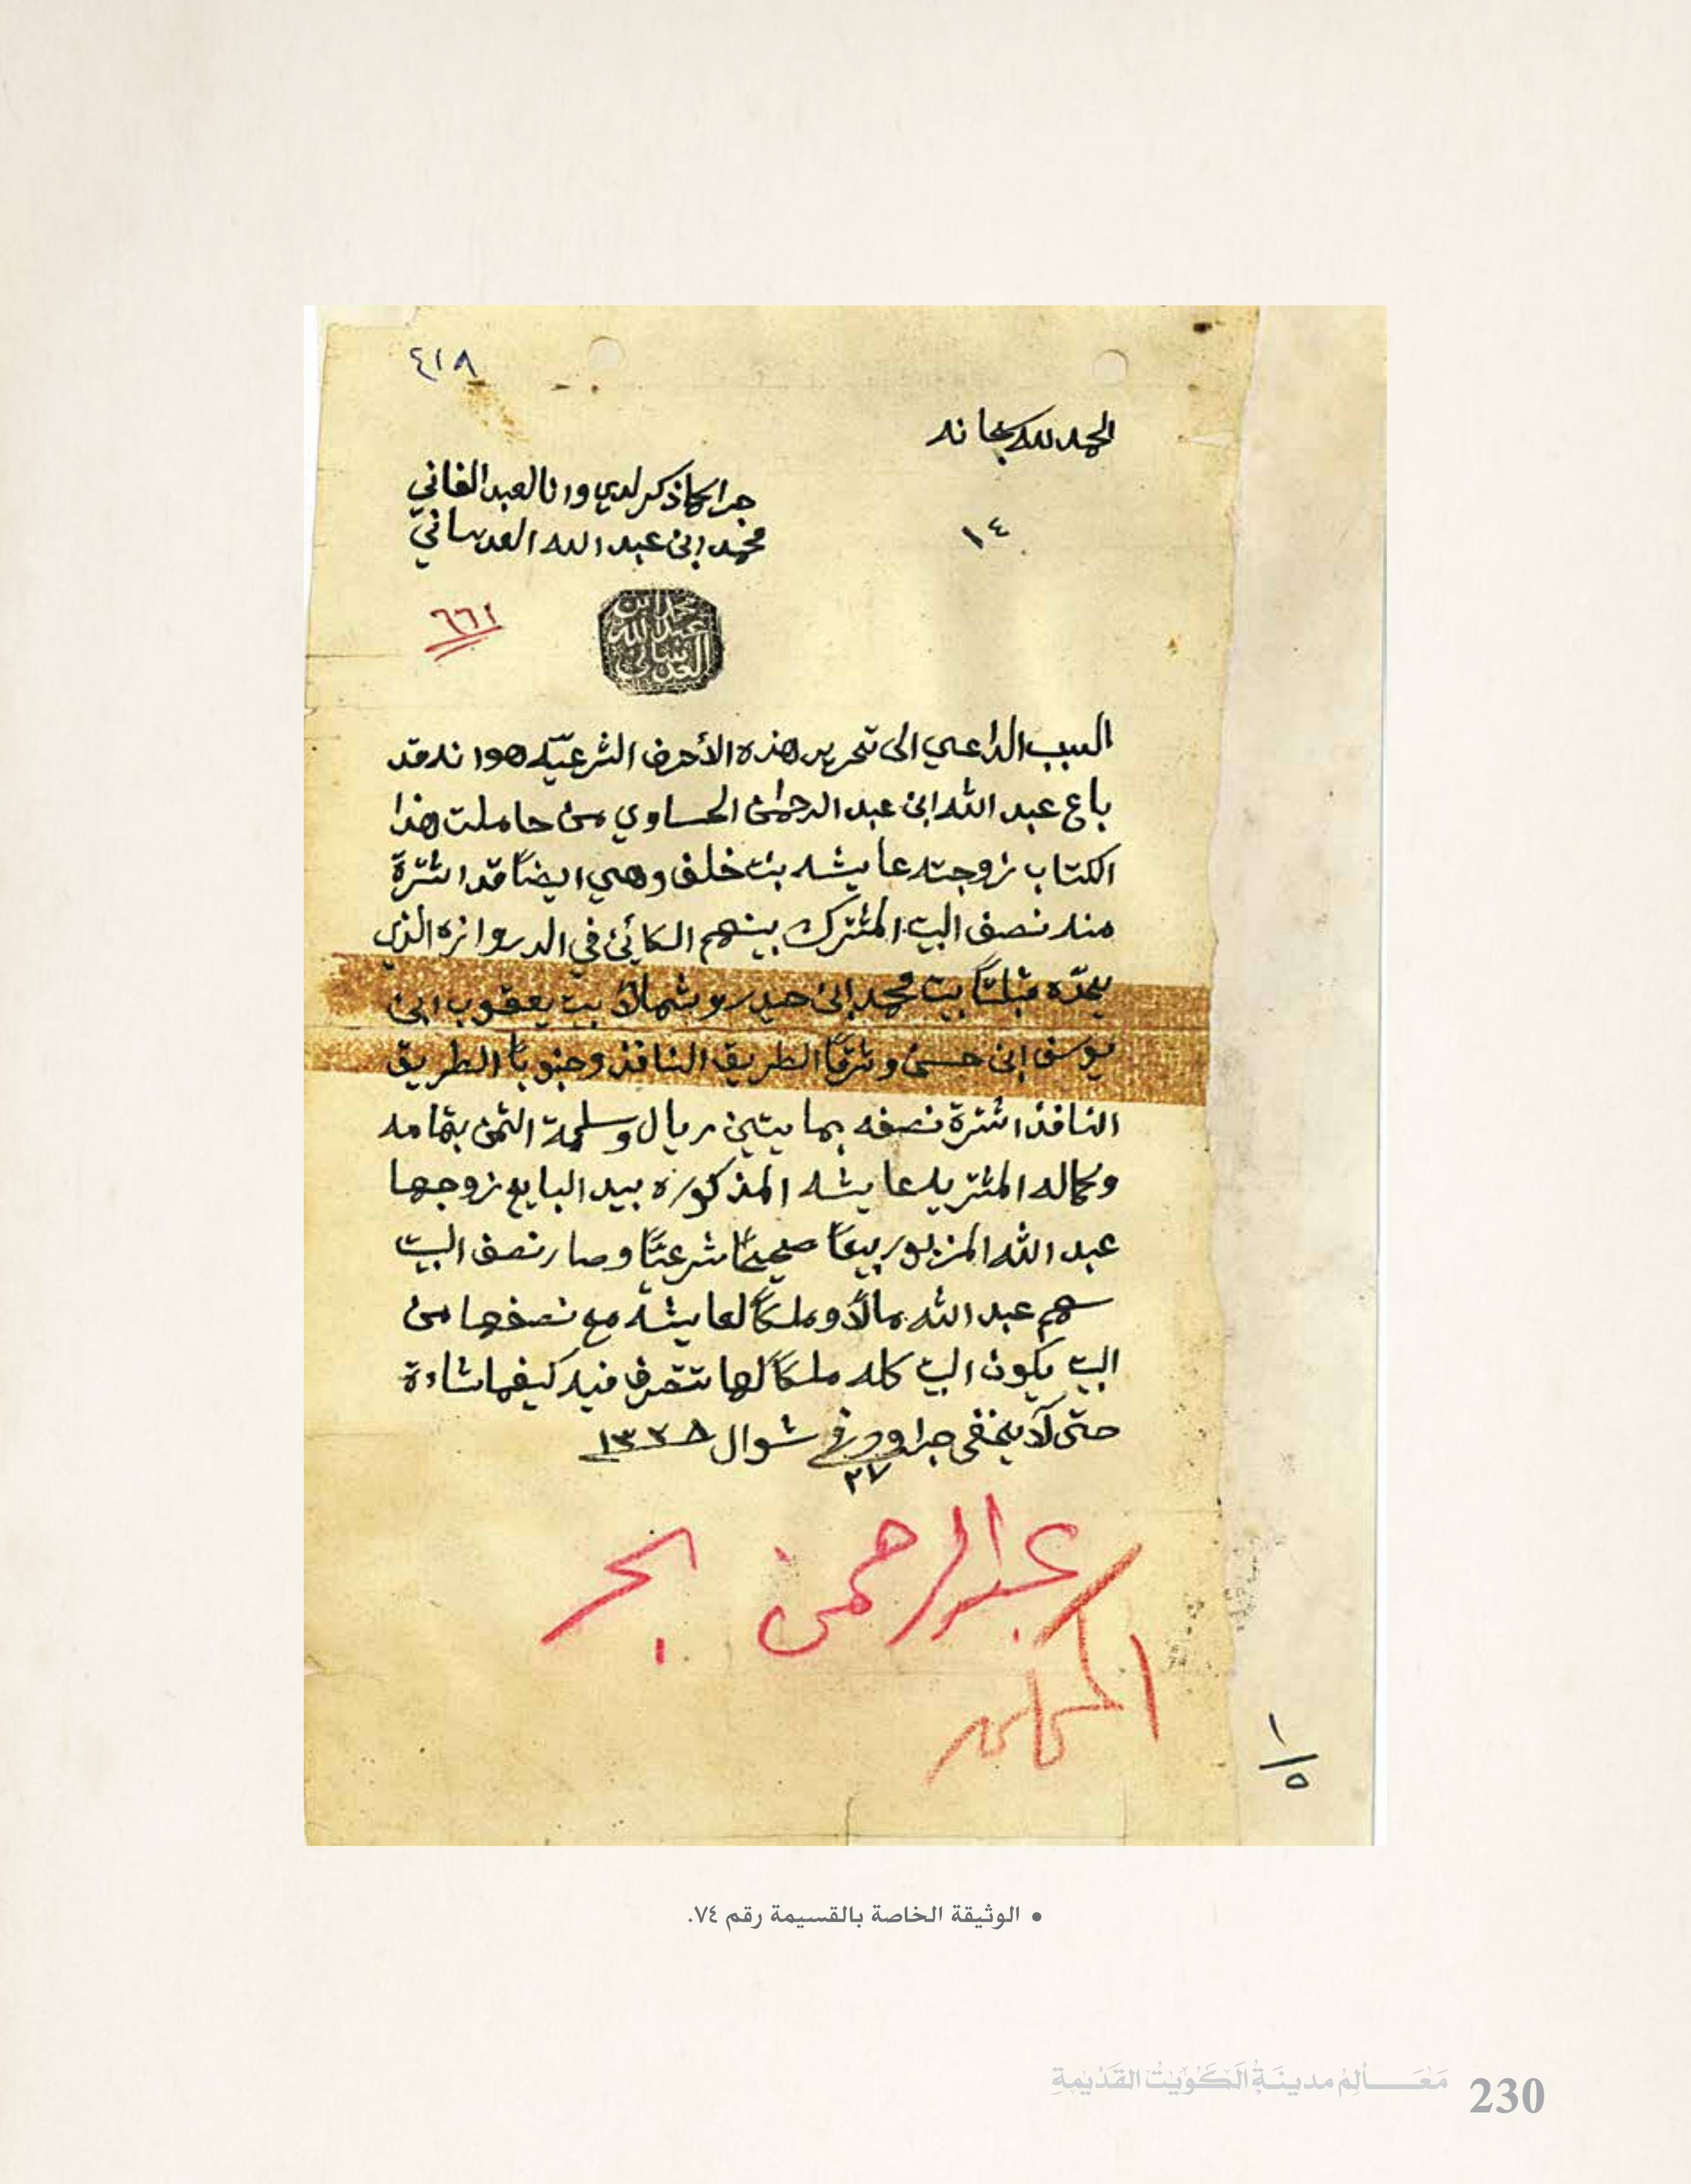 ٤١٨
الحمد لله سبحانه
جرا كما ذكر لدي وانا العبد الفاني
محمد ابن عبد الله العدساني
١٤
٦٦٢
محمد ابن
عبد الله
العدساني
السبب الداعي الى تحرير هذه الأحرف الشرعيّه هو انه قد
باع عبد الله ابن عبد الرحمٰن الحساوي من حاملت هذا
الكتاب زوجته عايشه بنت خلف وهي ايضاً قد اشترة
منه نصف البيت المشترك بينهم الكائن في الدروازه الذي
يحدّه قبلتاً بيت محمد ابن حيدر وشمالاً بيت يعقوب ابن
يوسف ابن حسن وشرقاً الطريق النافذ وجنوباً الطريق
النافذ اشترة نصفه بمايتين ريال وسلمة الثمن بتمامه
وكماله المشتريه عايشه المذكوره بيد البايع زوجها
عبد الله المزبور بيعاً صحيحاً شرعيّاً وصار نصف البيت
سهم عبد الله مالاً وملكاً لعايشه مع نصفها من
البيت يكون البيت كله ملكاً لها تتصرف فيه كيفما شاءة
حتى لا يخفى جرا وحرر في ٢٧ شوال ١٣٣٨
عبدالرحمن البحر
١/٥
• الوثيقة الخاصة بالقسيمة رقم ٧٤.
مَعَـــالِمُ مدينَةِ الكُوَيْتُ القَدْيمَةِ 230